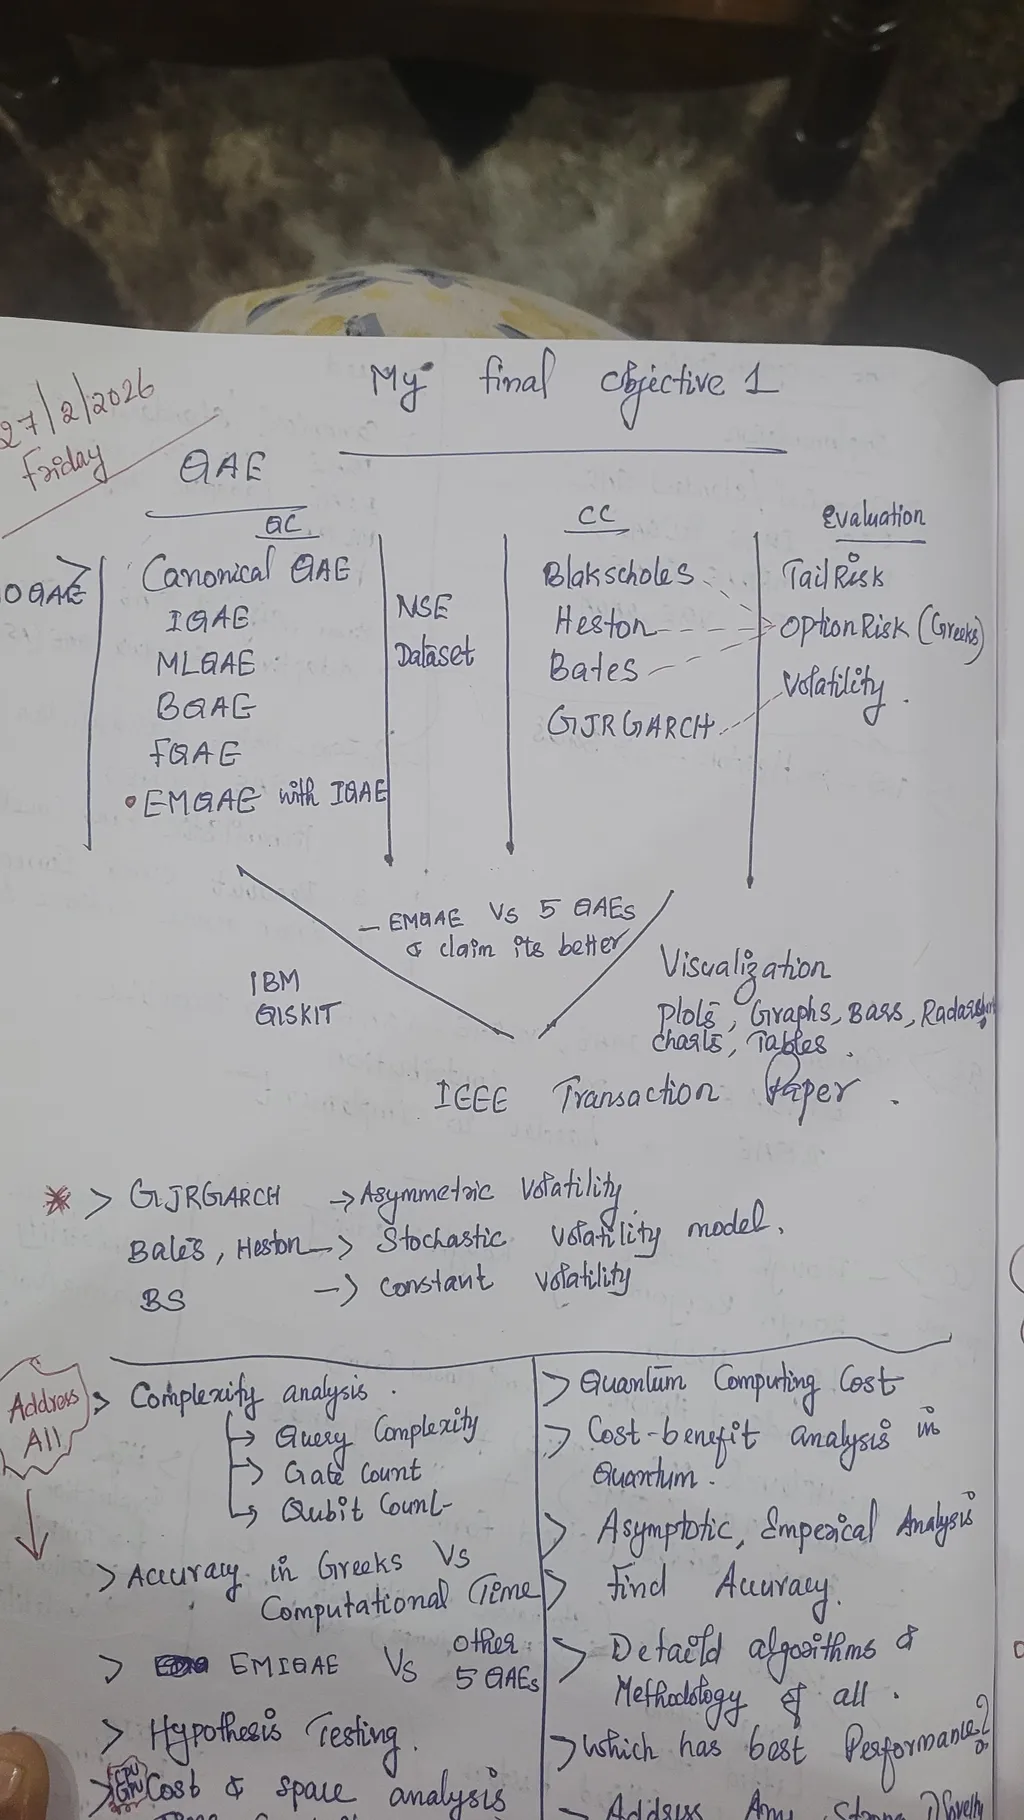 My final objective 1
27/2/2026
Friday
QAE
QC
OQAE
Canonical QAE
IQAE
MLQAE
BQAE
FQAE
• EMQAE with IQAE
NSE
Dataset
CC
Blakscholes
Heston
Bates
GJR GARCH
Evaluation
Tail Risk
Option Risk (Greeks)
Volatility.
- EMQAE Vs 5 QAEs
& claim its better
IBM
QISKIT
Visualization
Plots, Graphs, Bars, Radar
charts, Tables.
IEEE Transaction Paper.
* > GJRGARCH → Asymmetric Volatility
Bates, Heston → Stochastic volatility model.
BS → constant volatility
Address
All
> Complexity analysis.
→ Query Complexity
→ Gate Count
→ Qubit Count
> Accuracy in Greeks Vs
Computational Time
> EMIQAE Vs other
5 QAEs
> Hypothesis Testing.
> CPU
GPU Cost & space analysis
> Quantum Computing Cost
> Cost-benefit analysis in
Quantum.
> Asymptotic, Emperical Analysis
> Find Accuracy.
> Detaild algorithms &
Methodology of all.
> which has best Performance?
- Address Any Strong Novelty